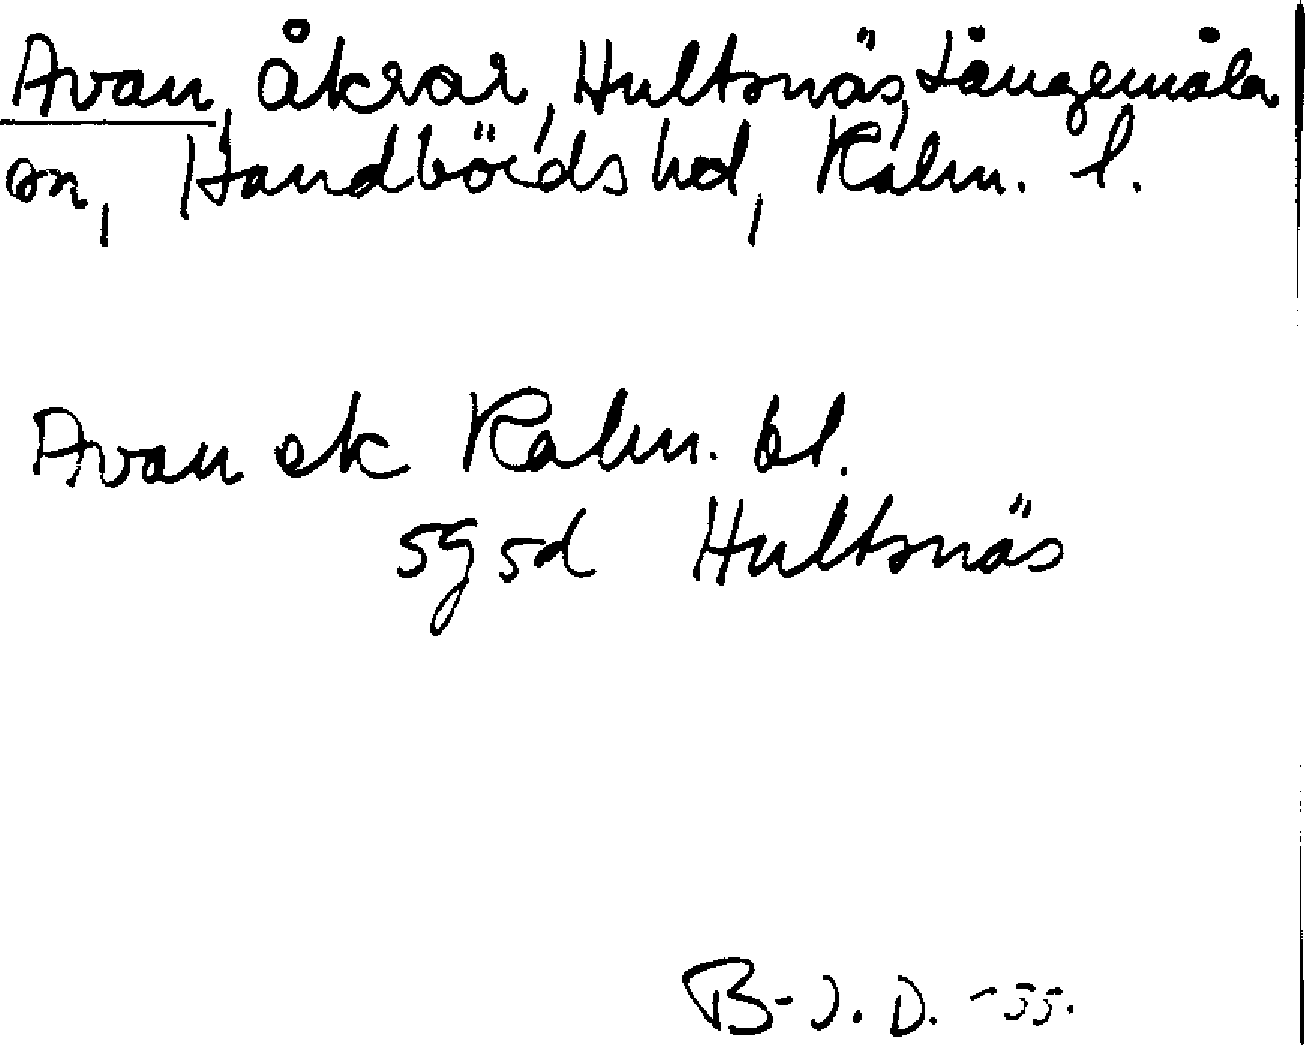 Avan, åkrar, Hultsnäs, Långemåla
sn, Handbörds hd, Kalm. l.
Avan ek Kalm. bl.
5g5d Hultsnäs
B-J. D. -55.